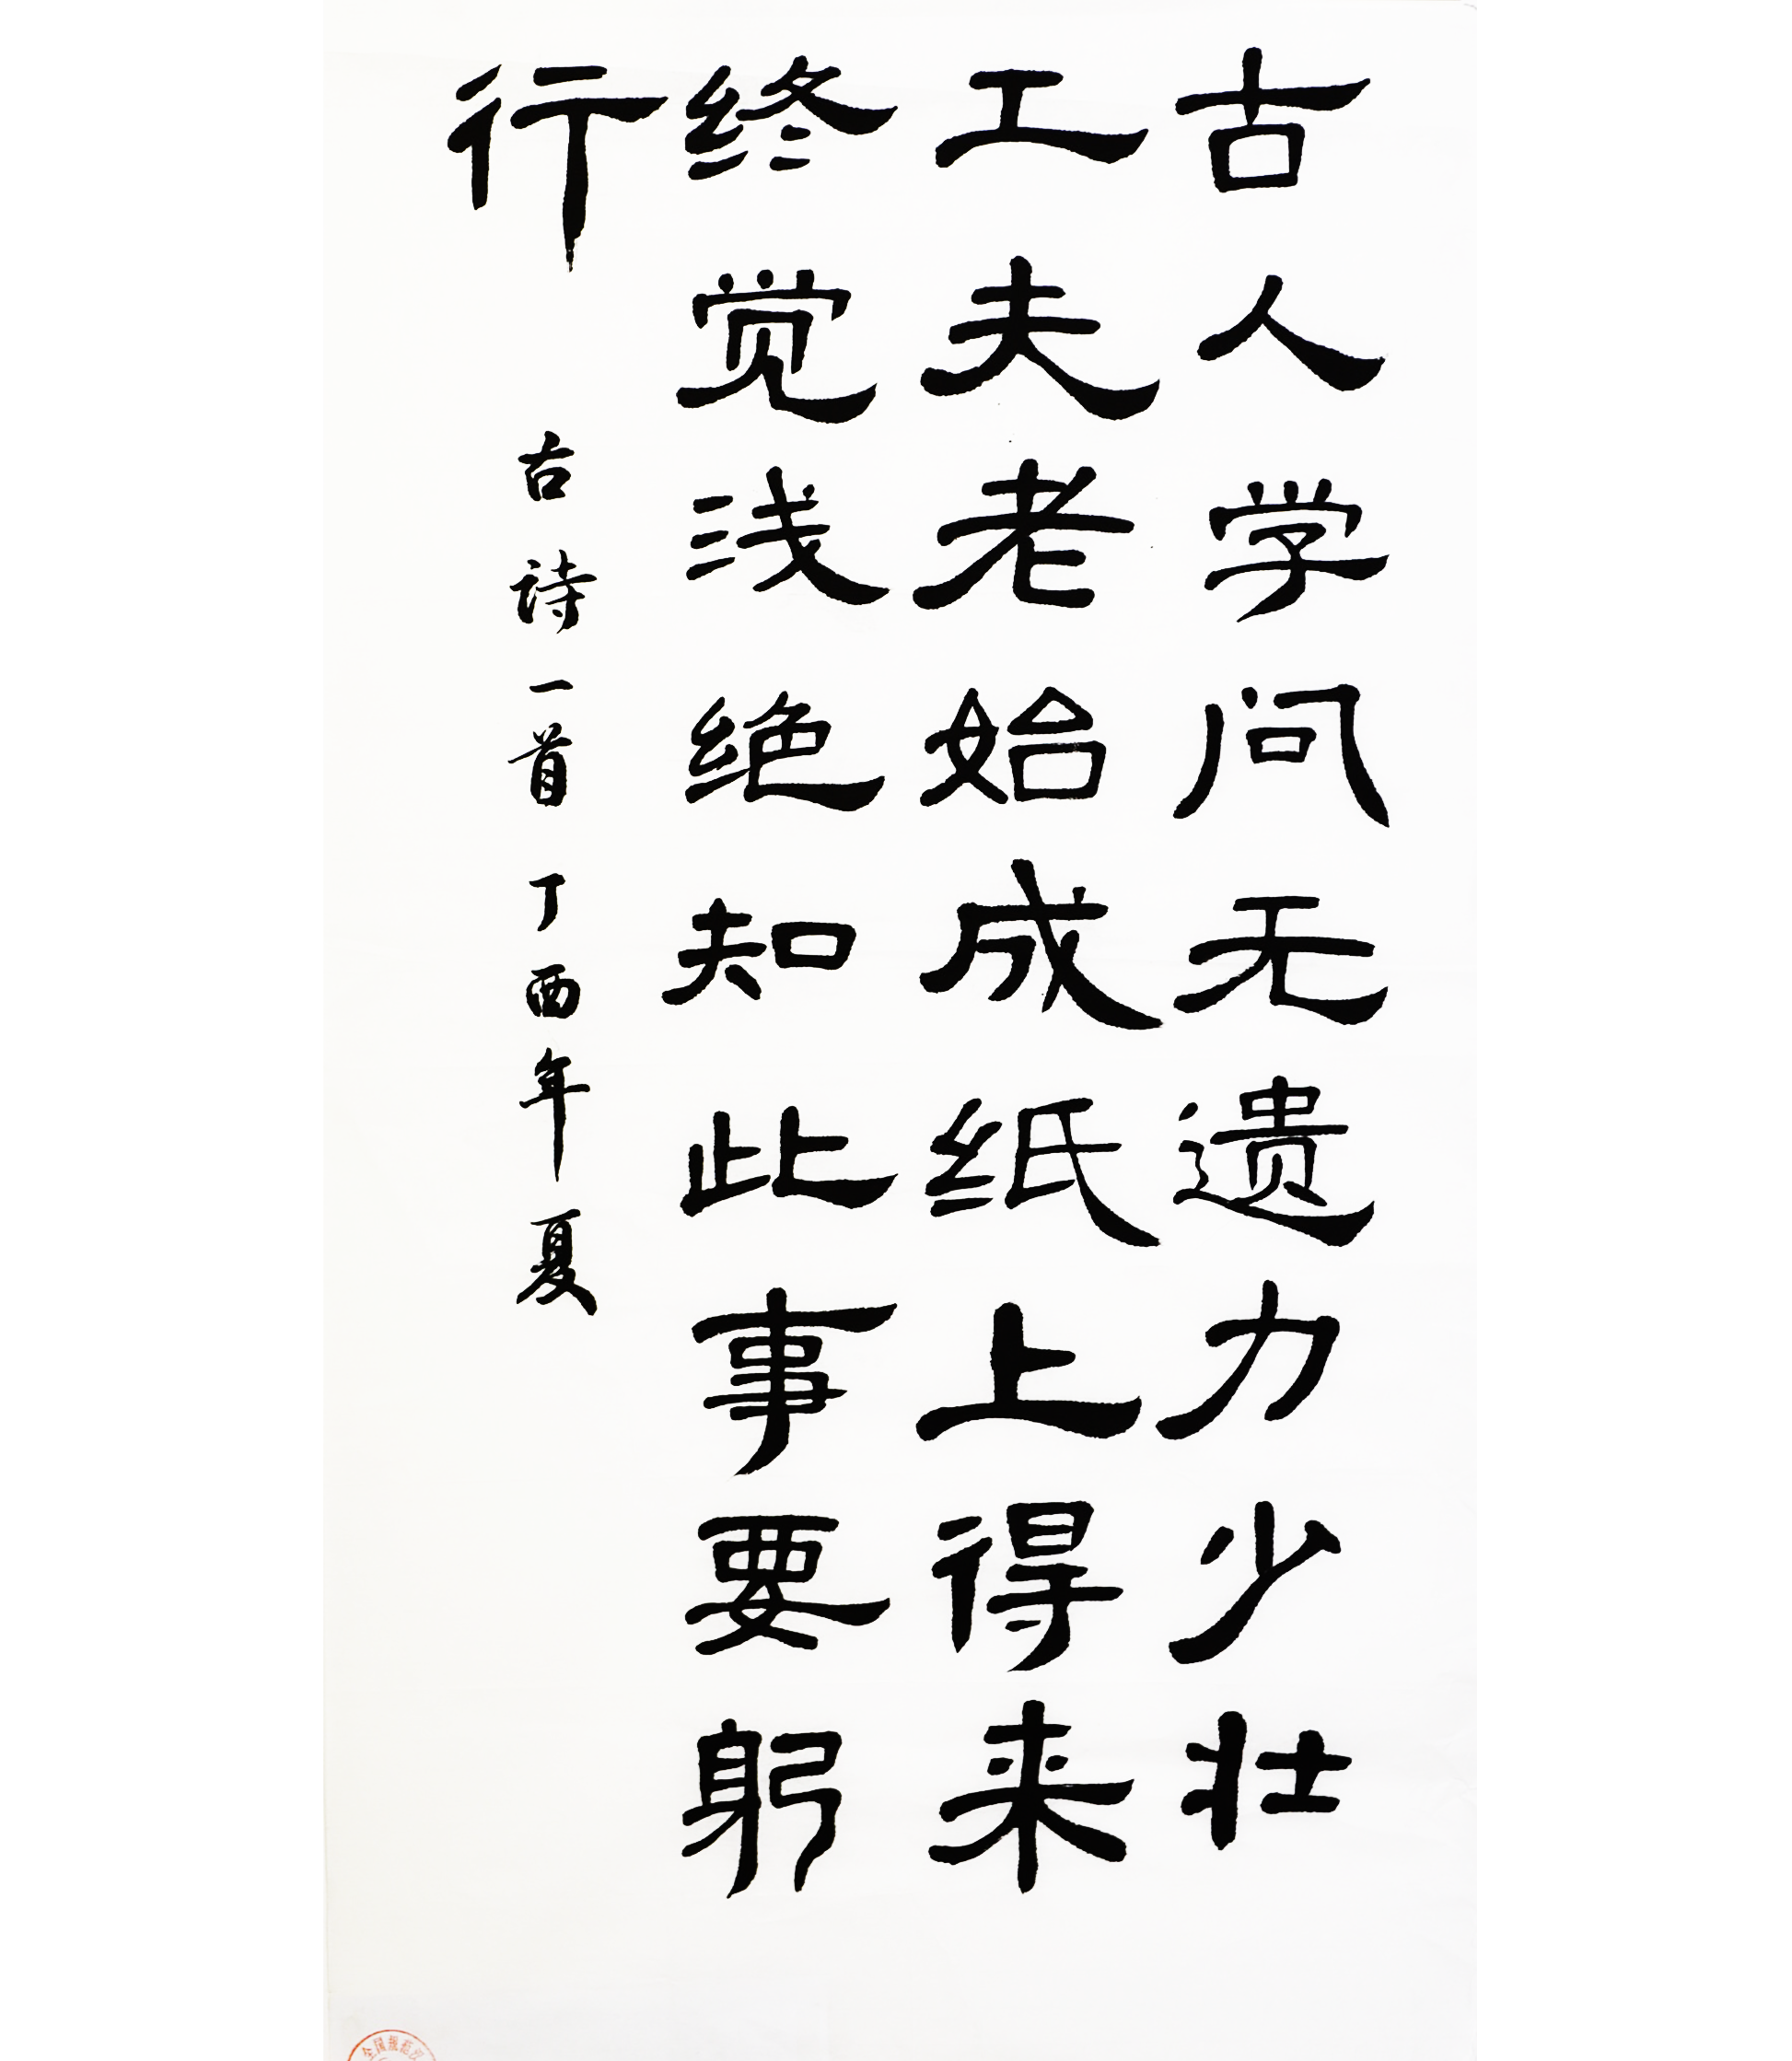 古人学问无遗力少壮
工夫老始成纸上得来
终觉浅绝知此事要躬
行
古诗一首 丁酉年夏
全国规范汉